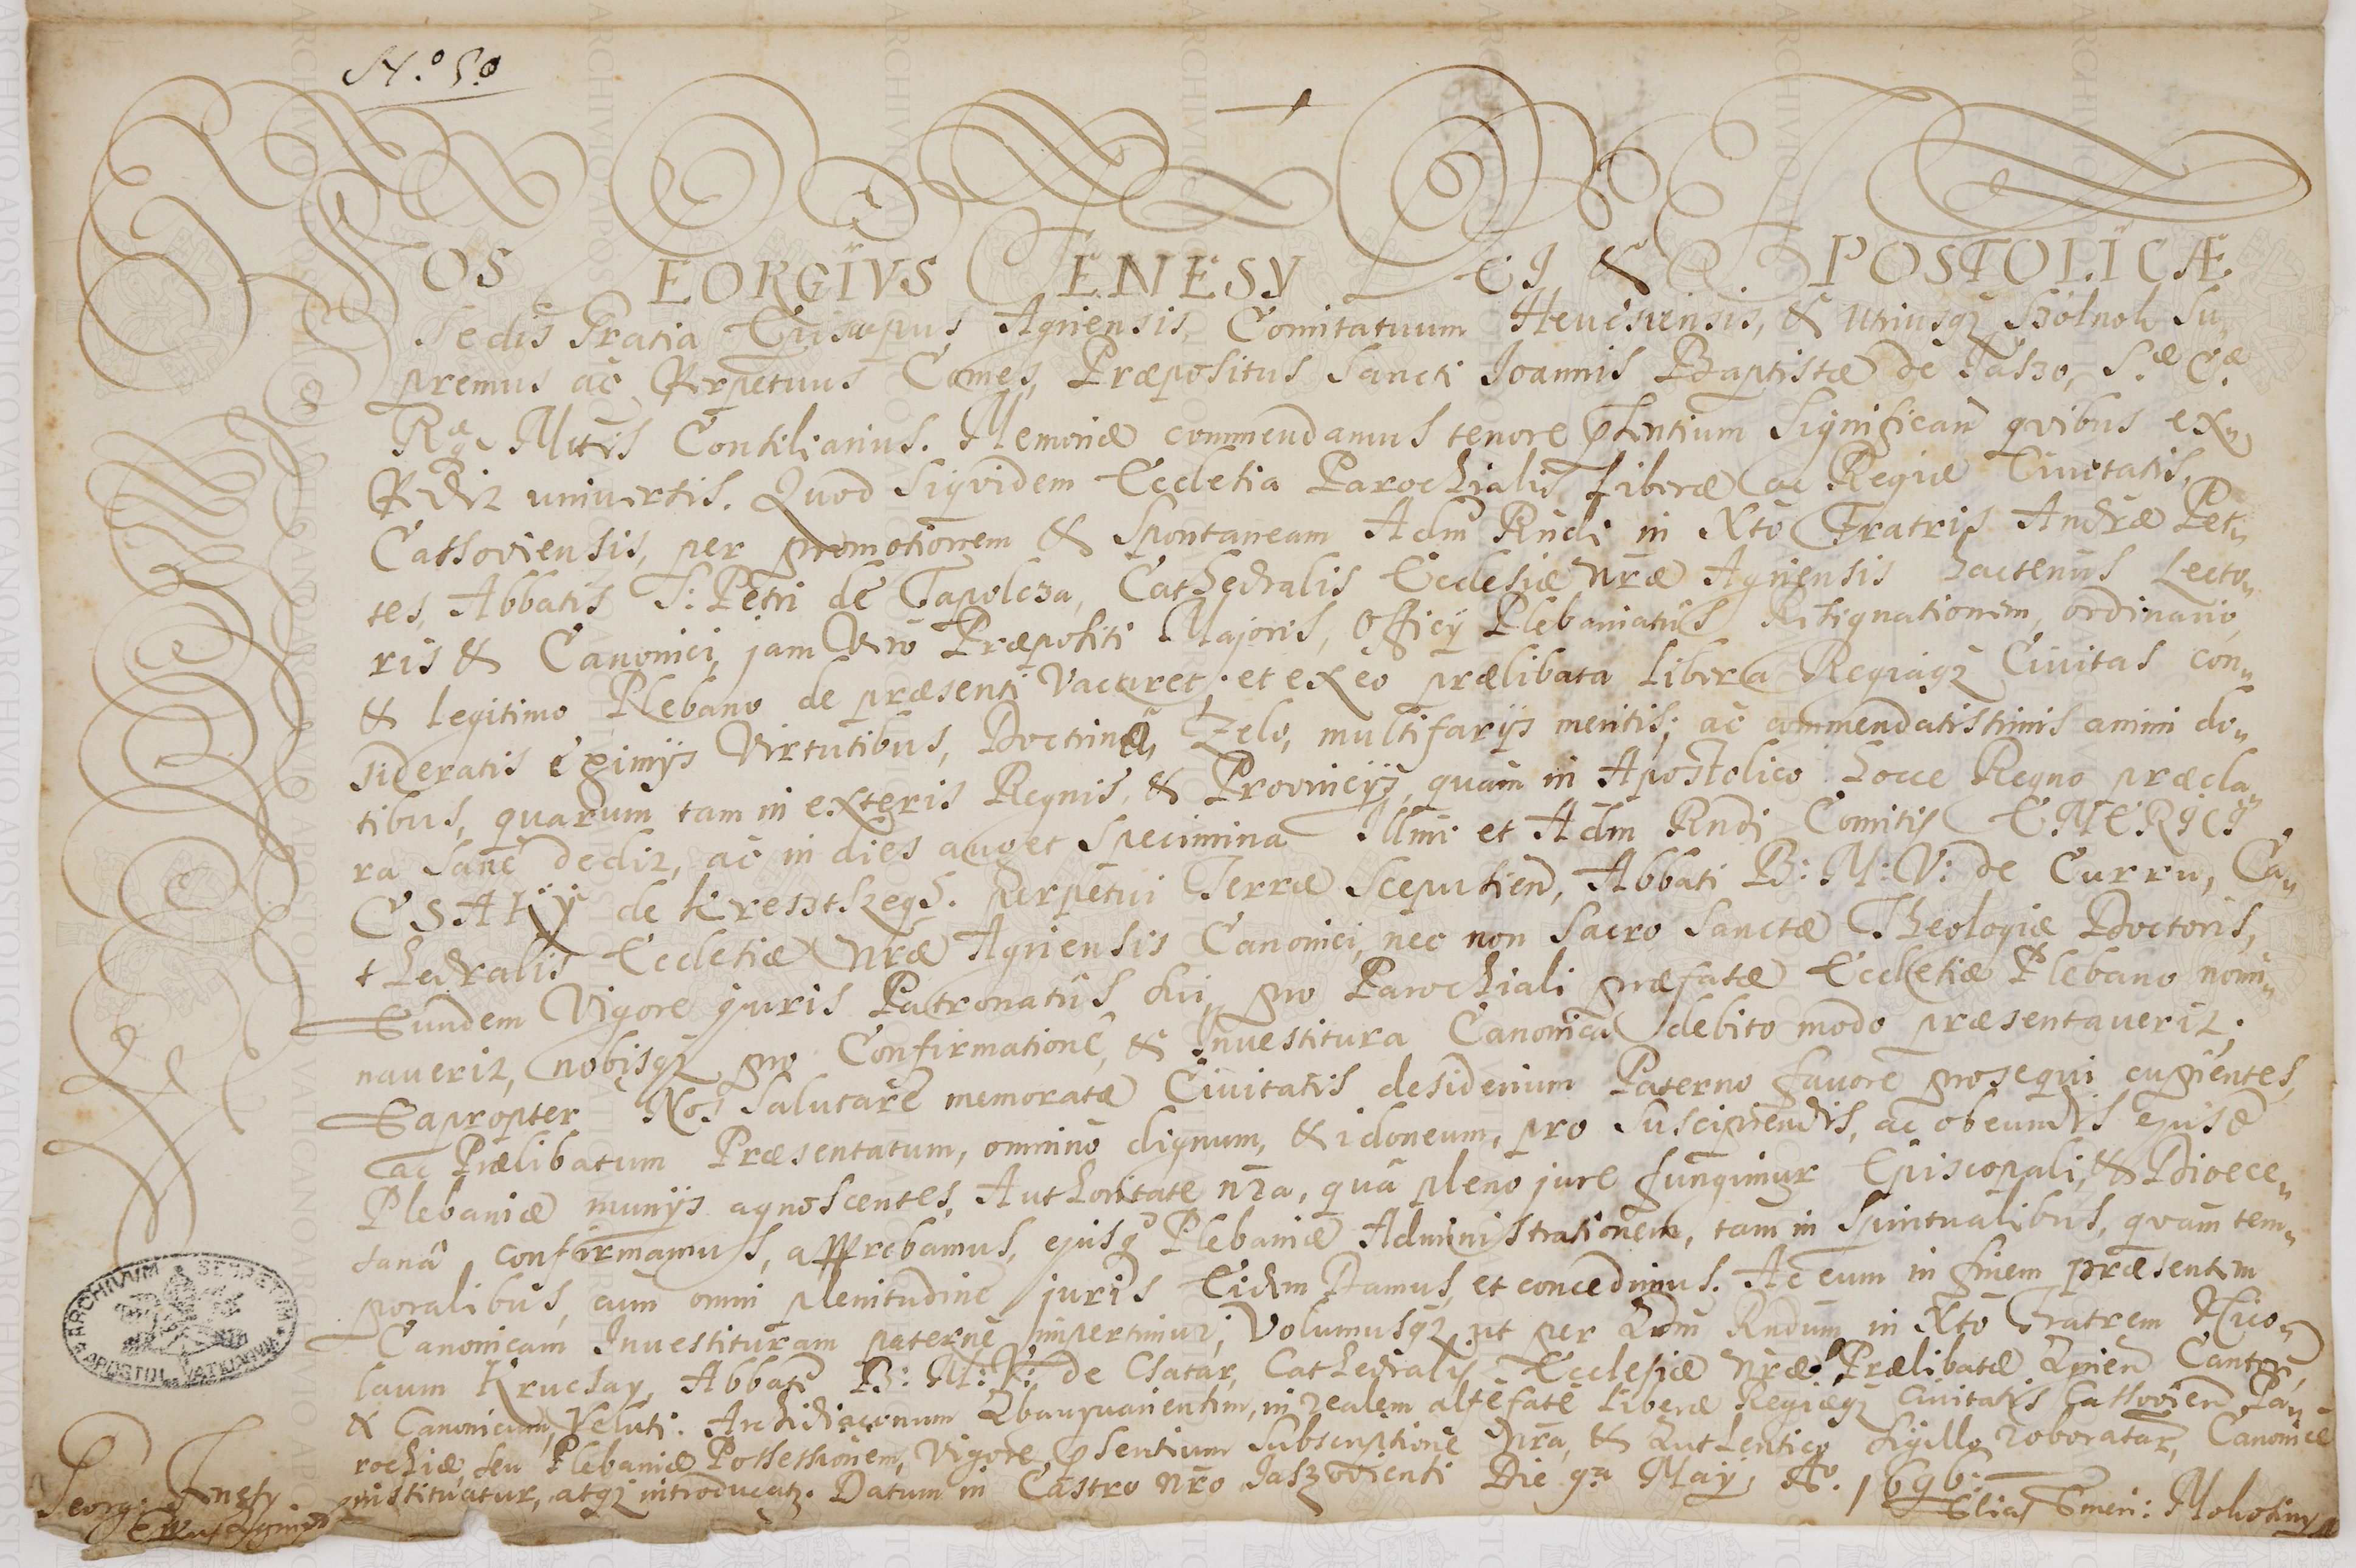 N.º 5.º
NOS GEORGIVS FENESSY DEI & APOSTOLICÆ
Sedis Gratia Episcopus Agriensis, Comitatuum Hevesiensis, & utriusq3 Szolnok Su„
premus ac Perpetuus Comes, Præpositus Sancti Joannis Baptistæ de Jaszo, S.æ C.æ
Rgæ Mttis Consiliarius. Memoriæ commendamus tenore pñtium significan quibus ex„
Pedit universis. Quod Siqvidem Ecclesia Parochialis Liberæ ac Regiæ Civitatis,
Cassoviensis, per promotionem & Spontaneam Adm Rñdi in Xto Fratris Andræ Pet„
tes, Abbatis S: Petri de Tapolcza, Cathedralis Ecclesiæ Nræ Agriensis hactenus Lecto„
ris & Canonici, jam Vero Præpositi Majoris, Officÿ Plebaniatûs Resignationem, ordinario,
& legitimo Plebano de præsenti Vacaret; et ex eo prælibata Libera Regiaq3 Civitas con„
sideratis eximÿs Virtutibus, Doctrinâ, Zelo, multifarÿs meritis; ac commendatissimis animi do„
tibus, quarum tam in exteris Regnis, & Provincÿs, quàm in Apostolico hocce Regno præcla„
ra sanè dedit, ac in dies auget Specimina Illmi et Adm Rndi Comitis EMERICI
CSAKŸ de Keresztszegh. perpetui Terræ Scepusien, Abbati B: M: V: de Curru, Ca„
thedralis Ecclesiæ Nræ Agriensis Canonici, nec non Sacro Sanctæ Theologiæ Doctoris,
Eundem Vigore juris Patronatûs sui, pro Parochiali præfatæ Ecclesiæ Plebano nomi„
naverit, nobisq3 pro Confirmatione, & Investitura Canonica debito modo præsentaverit;
Eapropter Nos Salutare memoratæ Civitatis desiderium Paterno favore prosequi cupientes,
ac Prælibatum Præsentatum, omninò dignum, & idoneum, pro Suscipiendis, ac obeundis ejusd
Plebaniæ munÿs agnoscentes, Authoritate nra, quâ pleno jure fungimur Episcopali, & Dioece„
sanâ confirmamus, approbamus, ejusq Plebaniæ Administrationem, tam in Spiritualibus, quam tem„
poralibus, cum omni plenitudine juris Eidm Damus, et concedimus. Ac eum in finem præsentem
Canonicam Investituram paternè impertimur; Volumusq3 ut per Adm Rndum in Xto Fratrem Nico„
laum Krucsay, Abbatē B: M: V: de Csatar, Cathedralis Ecclesiæ Nræ Prælibatæ Agrien Cantorē,
& Canonicum, Veluti Archidiaconum Abaujvariensem, in realem altefatē Liberæ Regiæq3 Civitatis Cassovien Pa„
rochiæ, seu Plebaniæ Possessionem, Vigore pñsentium Subscriptionē Nra, & Authentico Sigillo roboratar, Canonicē
instituatur, atq3 introducat. Datum in Castro nro Jaszoviensi Die 9a Maÿ Aº. 1696.
Georg: Fenesy
Eppus Agriensis
Elias Emeri: Mohosiny
ARCHIVUM SECRETUM APOSTOL. VATICANUM